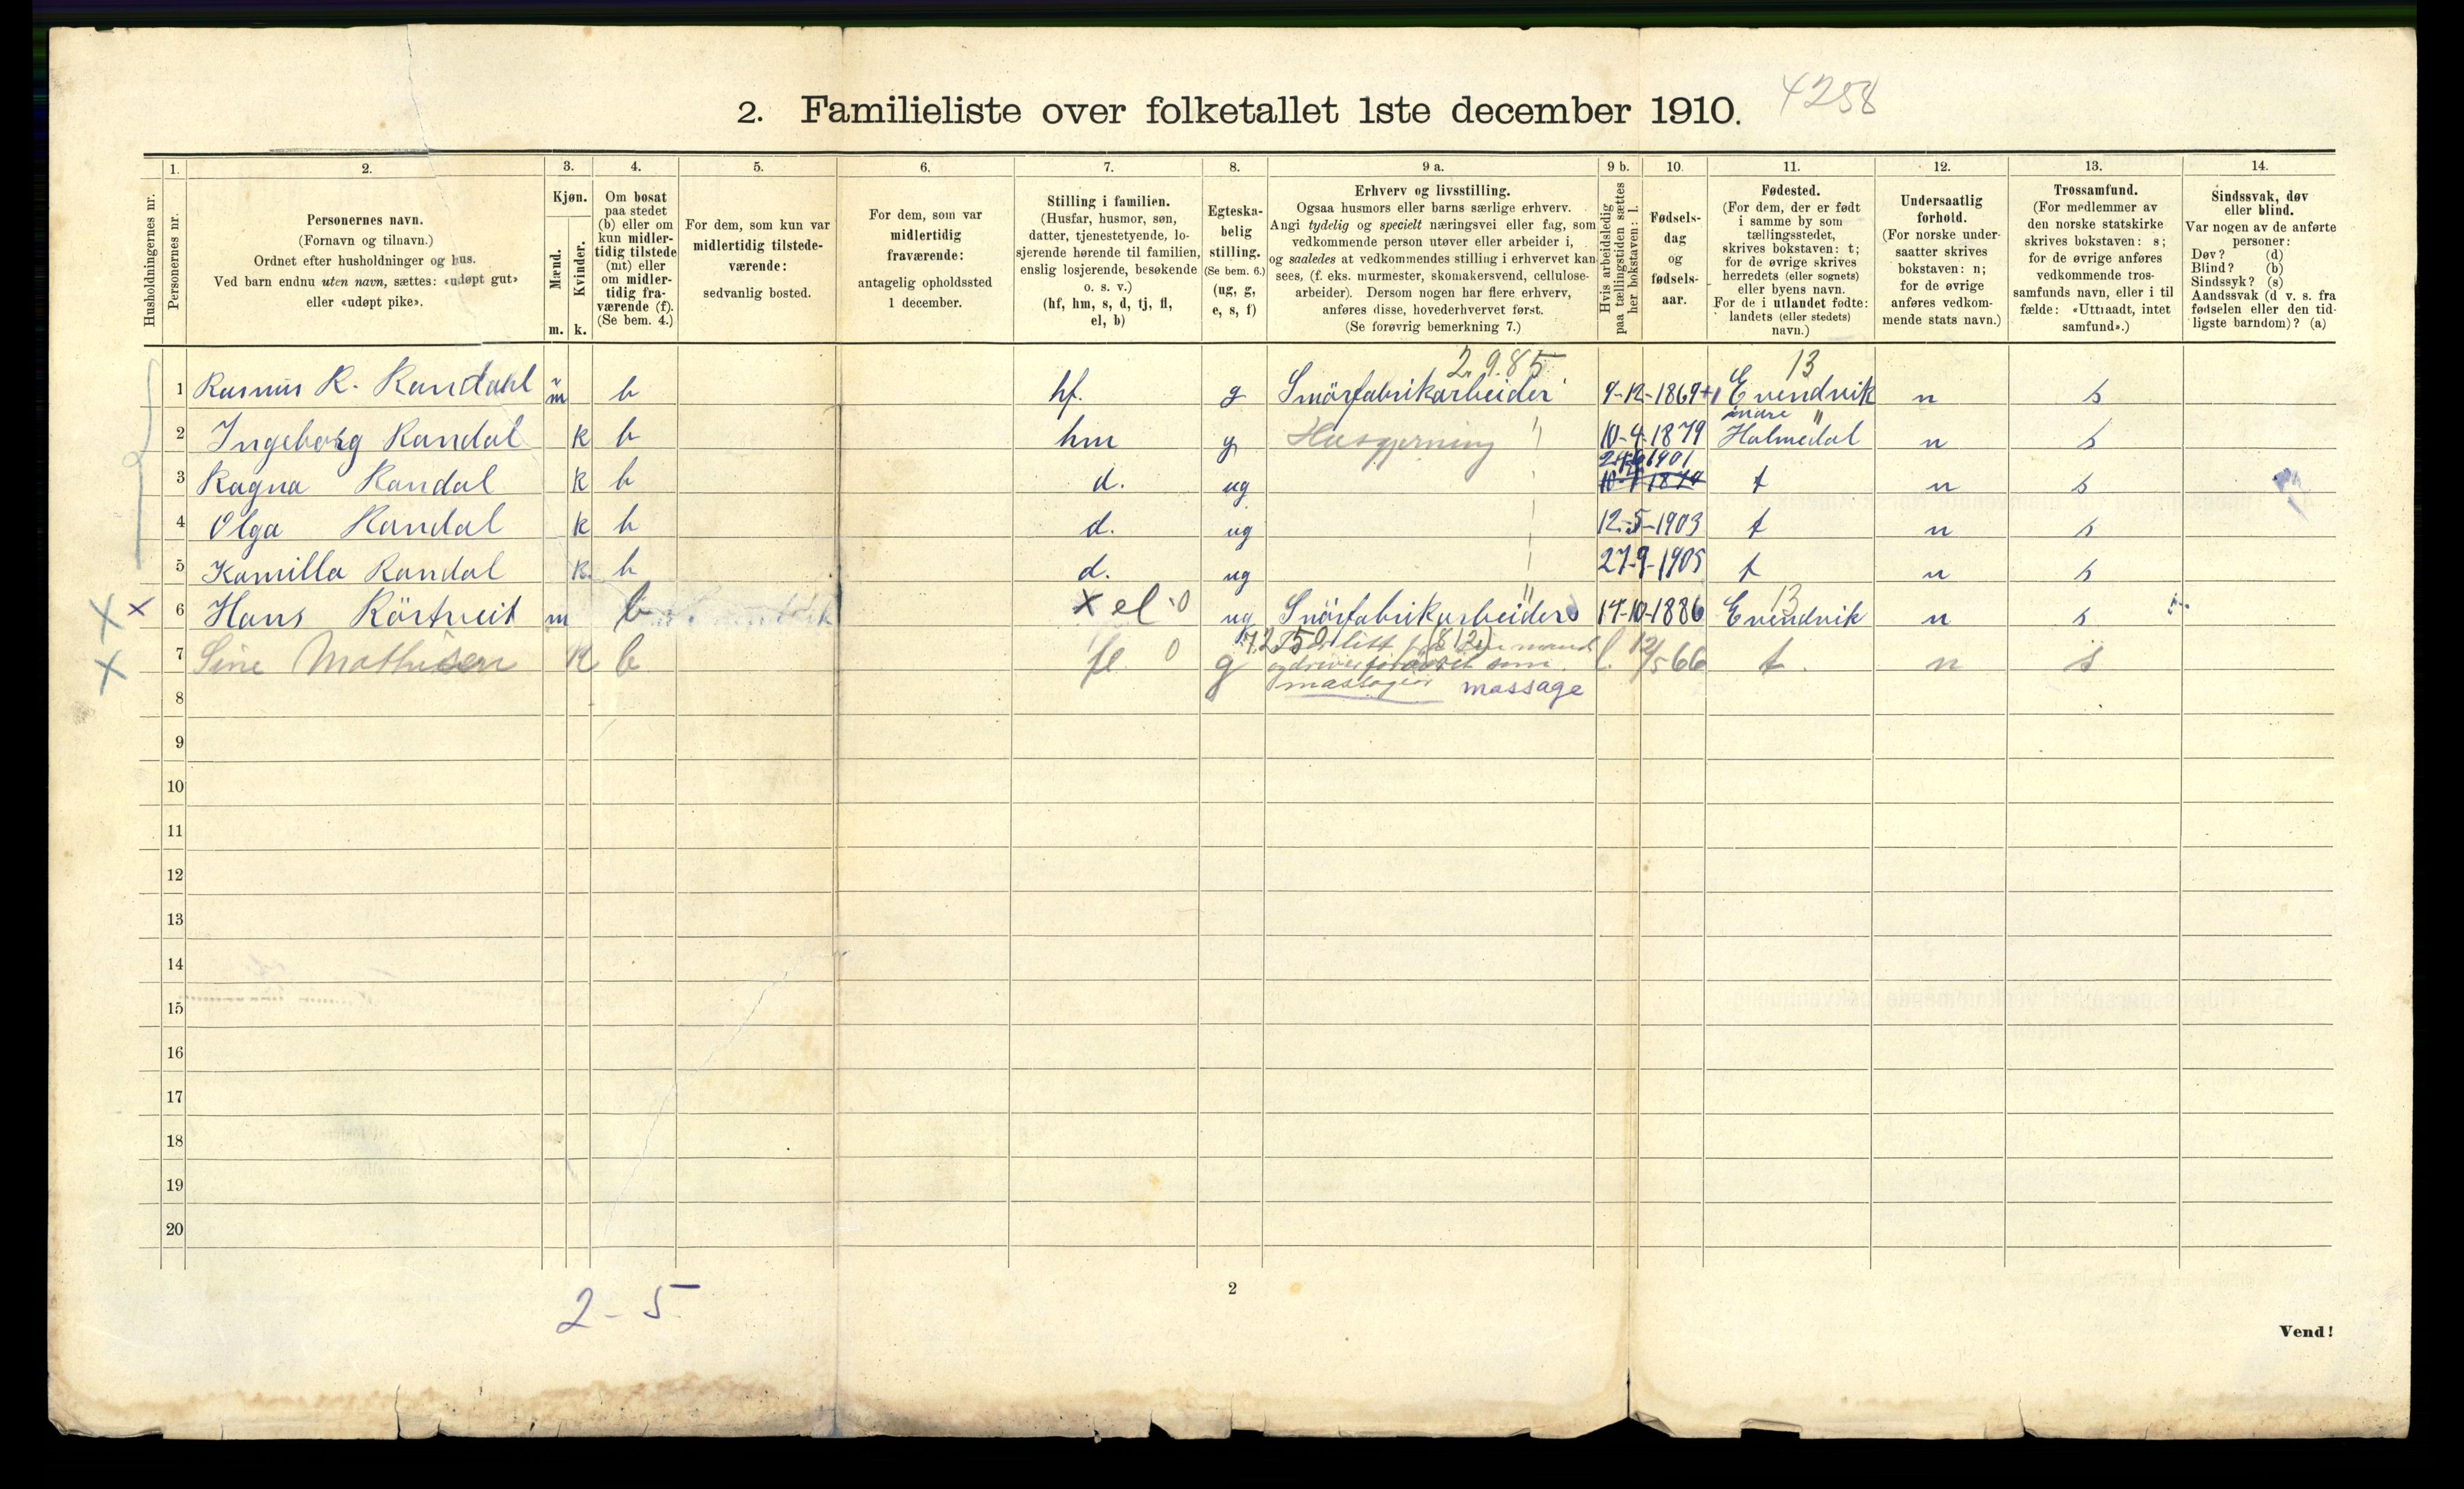 2. Familieliste over folketallet 1ste december 1910. 4258
Husholdningernes nr.
1. Personernes nr.
2. Personernes navn.
(Fornavn og tilnavn.)
Ordnet efter husholdninger og hus.
Ved barn endnu uten navn, sættes: «udøpt gut»
eller «udøpt pike».
3. Kjøn.
Mænd. m.
Kvinder. k.
4. Om bosat
paa stedet
(b) eller om
kun midler-
tidig tilstede
(mt) eller
om midler-
tidig fra-
værende (f).
(Se bem. 4.)
5. For dem, som kun var
midlertidig tilstede-
værende:
sedvanlig bosted.
6. For dem, som var
midlertidig
fraværende:
antagelig opholdssted
1 december.
7. Stilling i familien.
(Husfar, husmor, søn,
datter, tjenestetyende, lo-
sjerende hørende til familien,
enslig losjerende, besøkende
o. s. v.)
(hf, hm, s, d, tj, fl,
el, b)
8. Egteska-
belig
stilling.
(Se bem. 6.)
(ug, g,
e, s, f)
9 a. Erhverv og livsstilling.
Ogsaa husmors eller barns særlige erhverv.
Angi tydelig og specielt næringsvei eller fag, som
vedkommende person utøver eller arbeider i,
og saaledes at vedkommendes stilling i erhvervet kan
sees, (f. eks. murmester, skomakersvend, cellulose-
arbeider). Dersom nogen har flere erhverv,
anføres disse, hovederhvervet først.
(Se forøvrig bemerkning 7.)
9 b. Hvis arbeidsledig
paa tællingstiden sættes
her bokstaven: l.
10. Fødsels-
dag
og
fødsels-
aar.
11. Fødested.
(For dem, der er født
i samme by som
tællingsstedet,
skrives bokstaven: t;
for de øvrige skrives
herredets (eller sognets)
eller byens navn.
For de i utlandet fødte:
landets (eller stedets)
navn.)
12. Undersaatlig
forhold.
(For norske under-
saatter skrives
bokstaven: n;
for de øvrige
anføres vedkom-
mende stats navn.)
13. Trossamfund.
(For medlemmer av
den norske statskirke
skrives bokstaven: s;
for de øvrige anføres
vedkommende tros-
samfunds navn, eller i til
fælde: «Uttraadt, intet
samfund».)
14. Sindssvak, døv
eller blind.
Var nogen av de anførte
personer:
Døv? (d)
Blind? (b)
Sindssyk? (s)
Aandssvak (d v. s. fra
fødselen eller den tid-
ligste barndom)? (a)
2.9.85 13
1 Rasmus R. Randahl m b hf. g Smörfabrikarbeider 9-12-1869 Evendvik n s
2 Ingeborg Randal k b hm g Husgjerning " 10-4-1879 indre " Holmedal n s
3 Ragna Randal k b d. ug 1901 t n s
4 Olga Randal k b d. ug 12-5-1903 t n s
5 Kamilla Randal k. b d. ug 27-9-1905 t n s
X x 6 Hans Körtveit m b x el 0 ug Smörfabrikarbeider " 14-10-1886 13 Evendvik n s
X 7 Sine Mathisen K b fl 0 g og driver som l. 12/5 66 t. n s
massage
8
9
10
11
12
13
14
15
16
17
18
19
20
2 - 5
2
Vend!